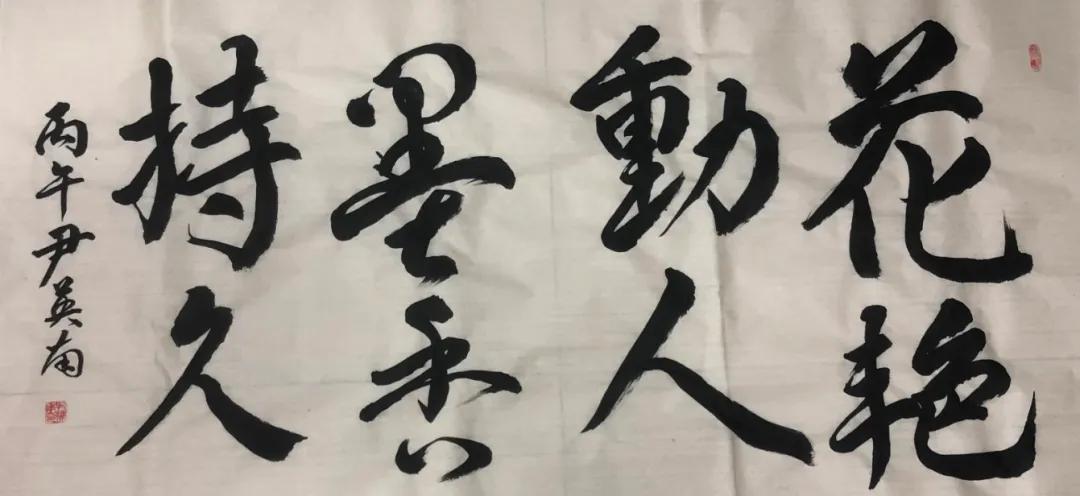 花艳
動人
墨香
持久
丙午尹英南